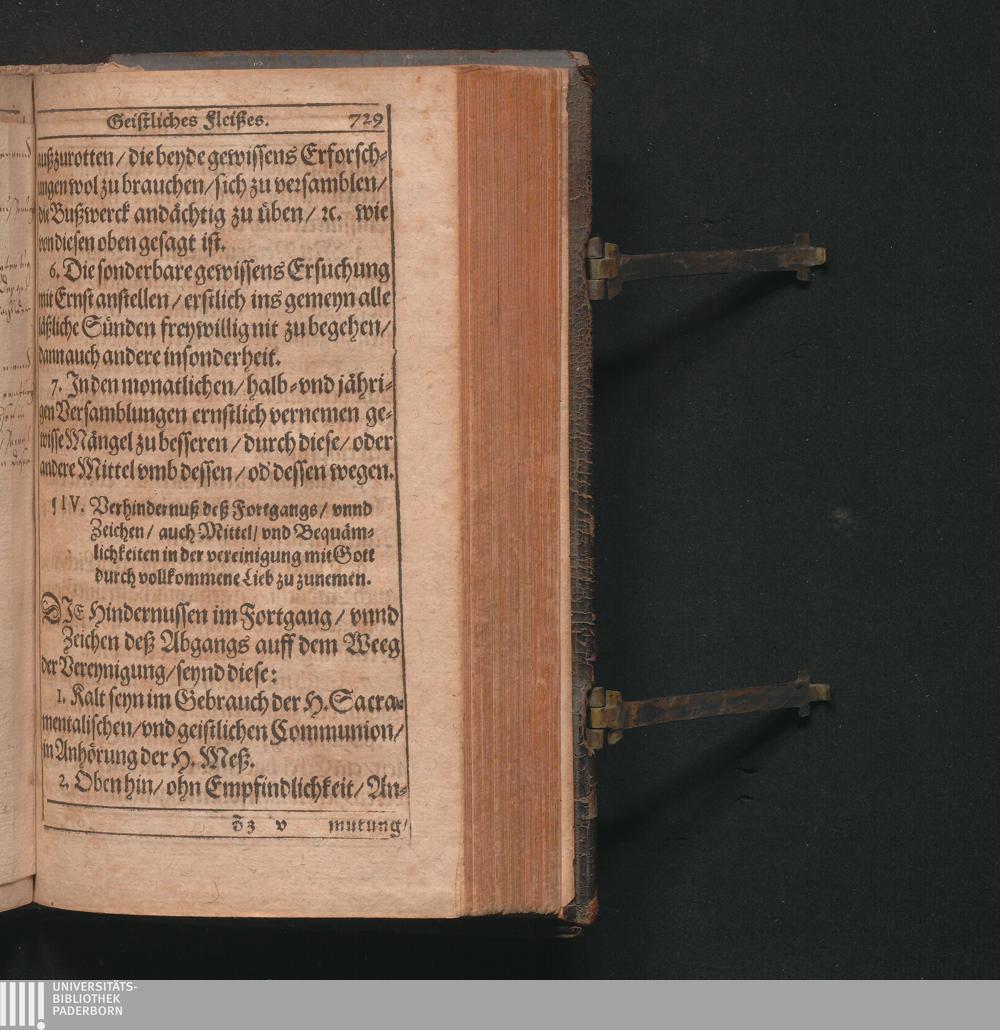 Geistliches Fleißes. 729
außzurotten/ die beyde gewissens Erforsch-
ungen wol zu brauchen/ sich zu versamblen/
die Bußwerck andächtig zu üben/ ꝛc. wie
von diesen oben gesagt ist.
6. Die sonderbare gewissens Ersuchung
mit Ernst anstellen/ erstlich ins gemeyn alle
läßliche Sünden freywillig nit zu begehen/
dann auch andere insonderheit.
7. In den monatlichen/ halb- vnd jähri-
gen Versamblungen ernstlich vernemen ge-
wisse Mängel zu besseren/ durch diese/ oder
andere Mittel vmb dessen/ oď dessen wegen.
§ IV. Verhindernuß deß Fortgangs/ vnnd
Zeichen/ auch Mittel/ vnd Bequäm-
lichkeiten in der vereinigung mit Gott
durch vollkommene Lieb zu zunemen.
DIE Hindernussen im Fortgang/ vnnd
Zeichen deß Abgangs auff dem Weeg
der Vereynigung/ seynd diese:
1. Kalt seyn im Gebrauch der H. Sacra-
mentalischen/ vnd geistlichen Communion/
in Anhörung der H. Meß.
2. Obenhin/ ohn Empfindlichkeit/ An-
Zz v mutung/
UNIVERSITÄTS-
BIBLIOTHEK
PADERBORN